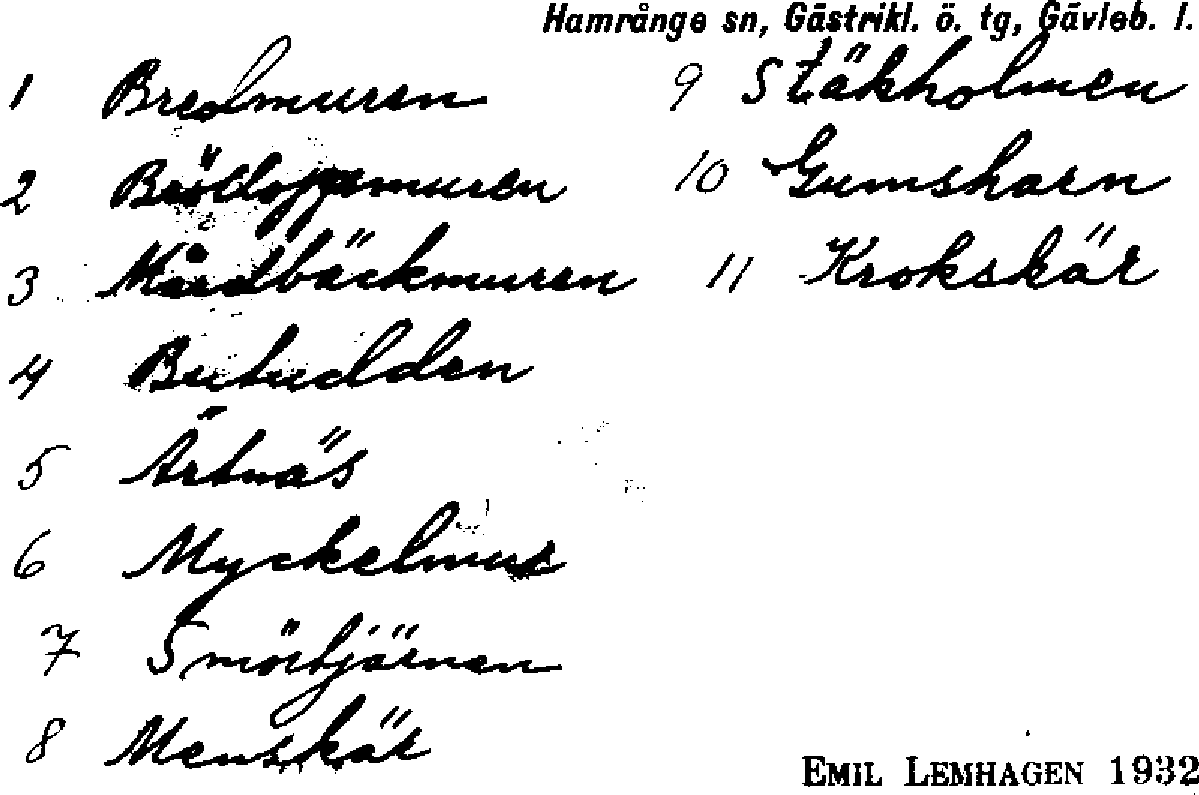 Hamrånge sn, Gästrikl. ö. tg, Gävleb. l.
1 Bredmuren
2 Bröllopsmuren
3 Mårdbäckmuren
4 Butudden
5 Ärtnäs
6 Myckelmur
7 Smörtjärnen
8 Menskär
9 Stäkholmen
10 Gumsharn
11 Krokskär
EMIL LEMHAGEN 1932